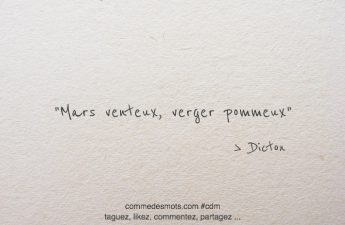 "Mars venteux, verger pommeux"
> Dicton
commedesmots.com #cdm
taguez, likez, commentez, partagez ...